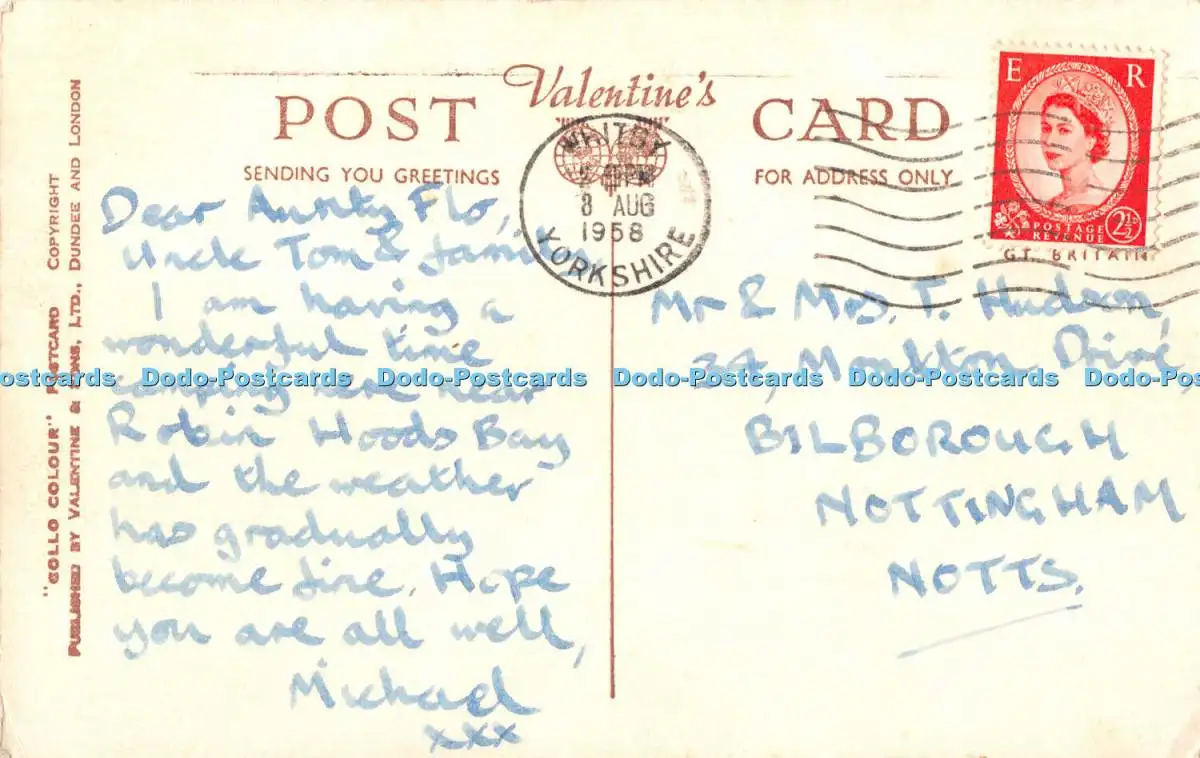 Valentine's
POST CARD
SENDING YOU GREETINGS
FOR ADDRESS ONLY
"COLLO COLOUR" POSTCARD COPYRIGHT
PUBLISHED BY VALENTINE & SONS, LTD., DUNDEE AND LONDON
WHITBY
PM
8 AUG
1958
YORKSHIRE
E R
POSTAGE
REVENUE
2½
GT. BRITAIN
Dear Aunty Flo,
Uncle Tom & family,
I am having a
wonderful time
camping here near
Robin Hoods Bay
and the weather
has gradually
become fine. Hope
you are all well,
Michael
xxx
Mr & Mrs. T. Hudson,
34, Monkton Drive,
BILBOROUGH
NOTTINGHAM
NOTTS.
Dodo-Postcards Dodo-Postcards Dodo-Postcards Dodo-Postcards Dodo-Postcards Dodo-Postcards